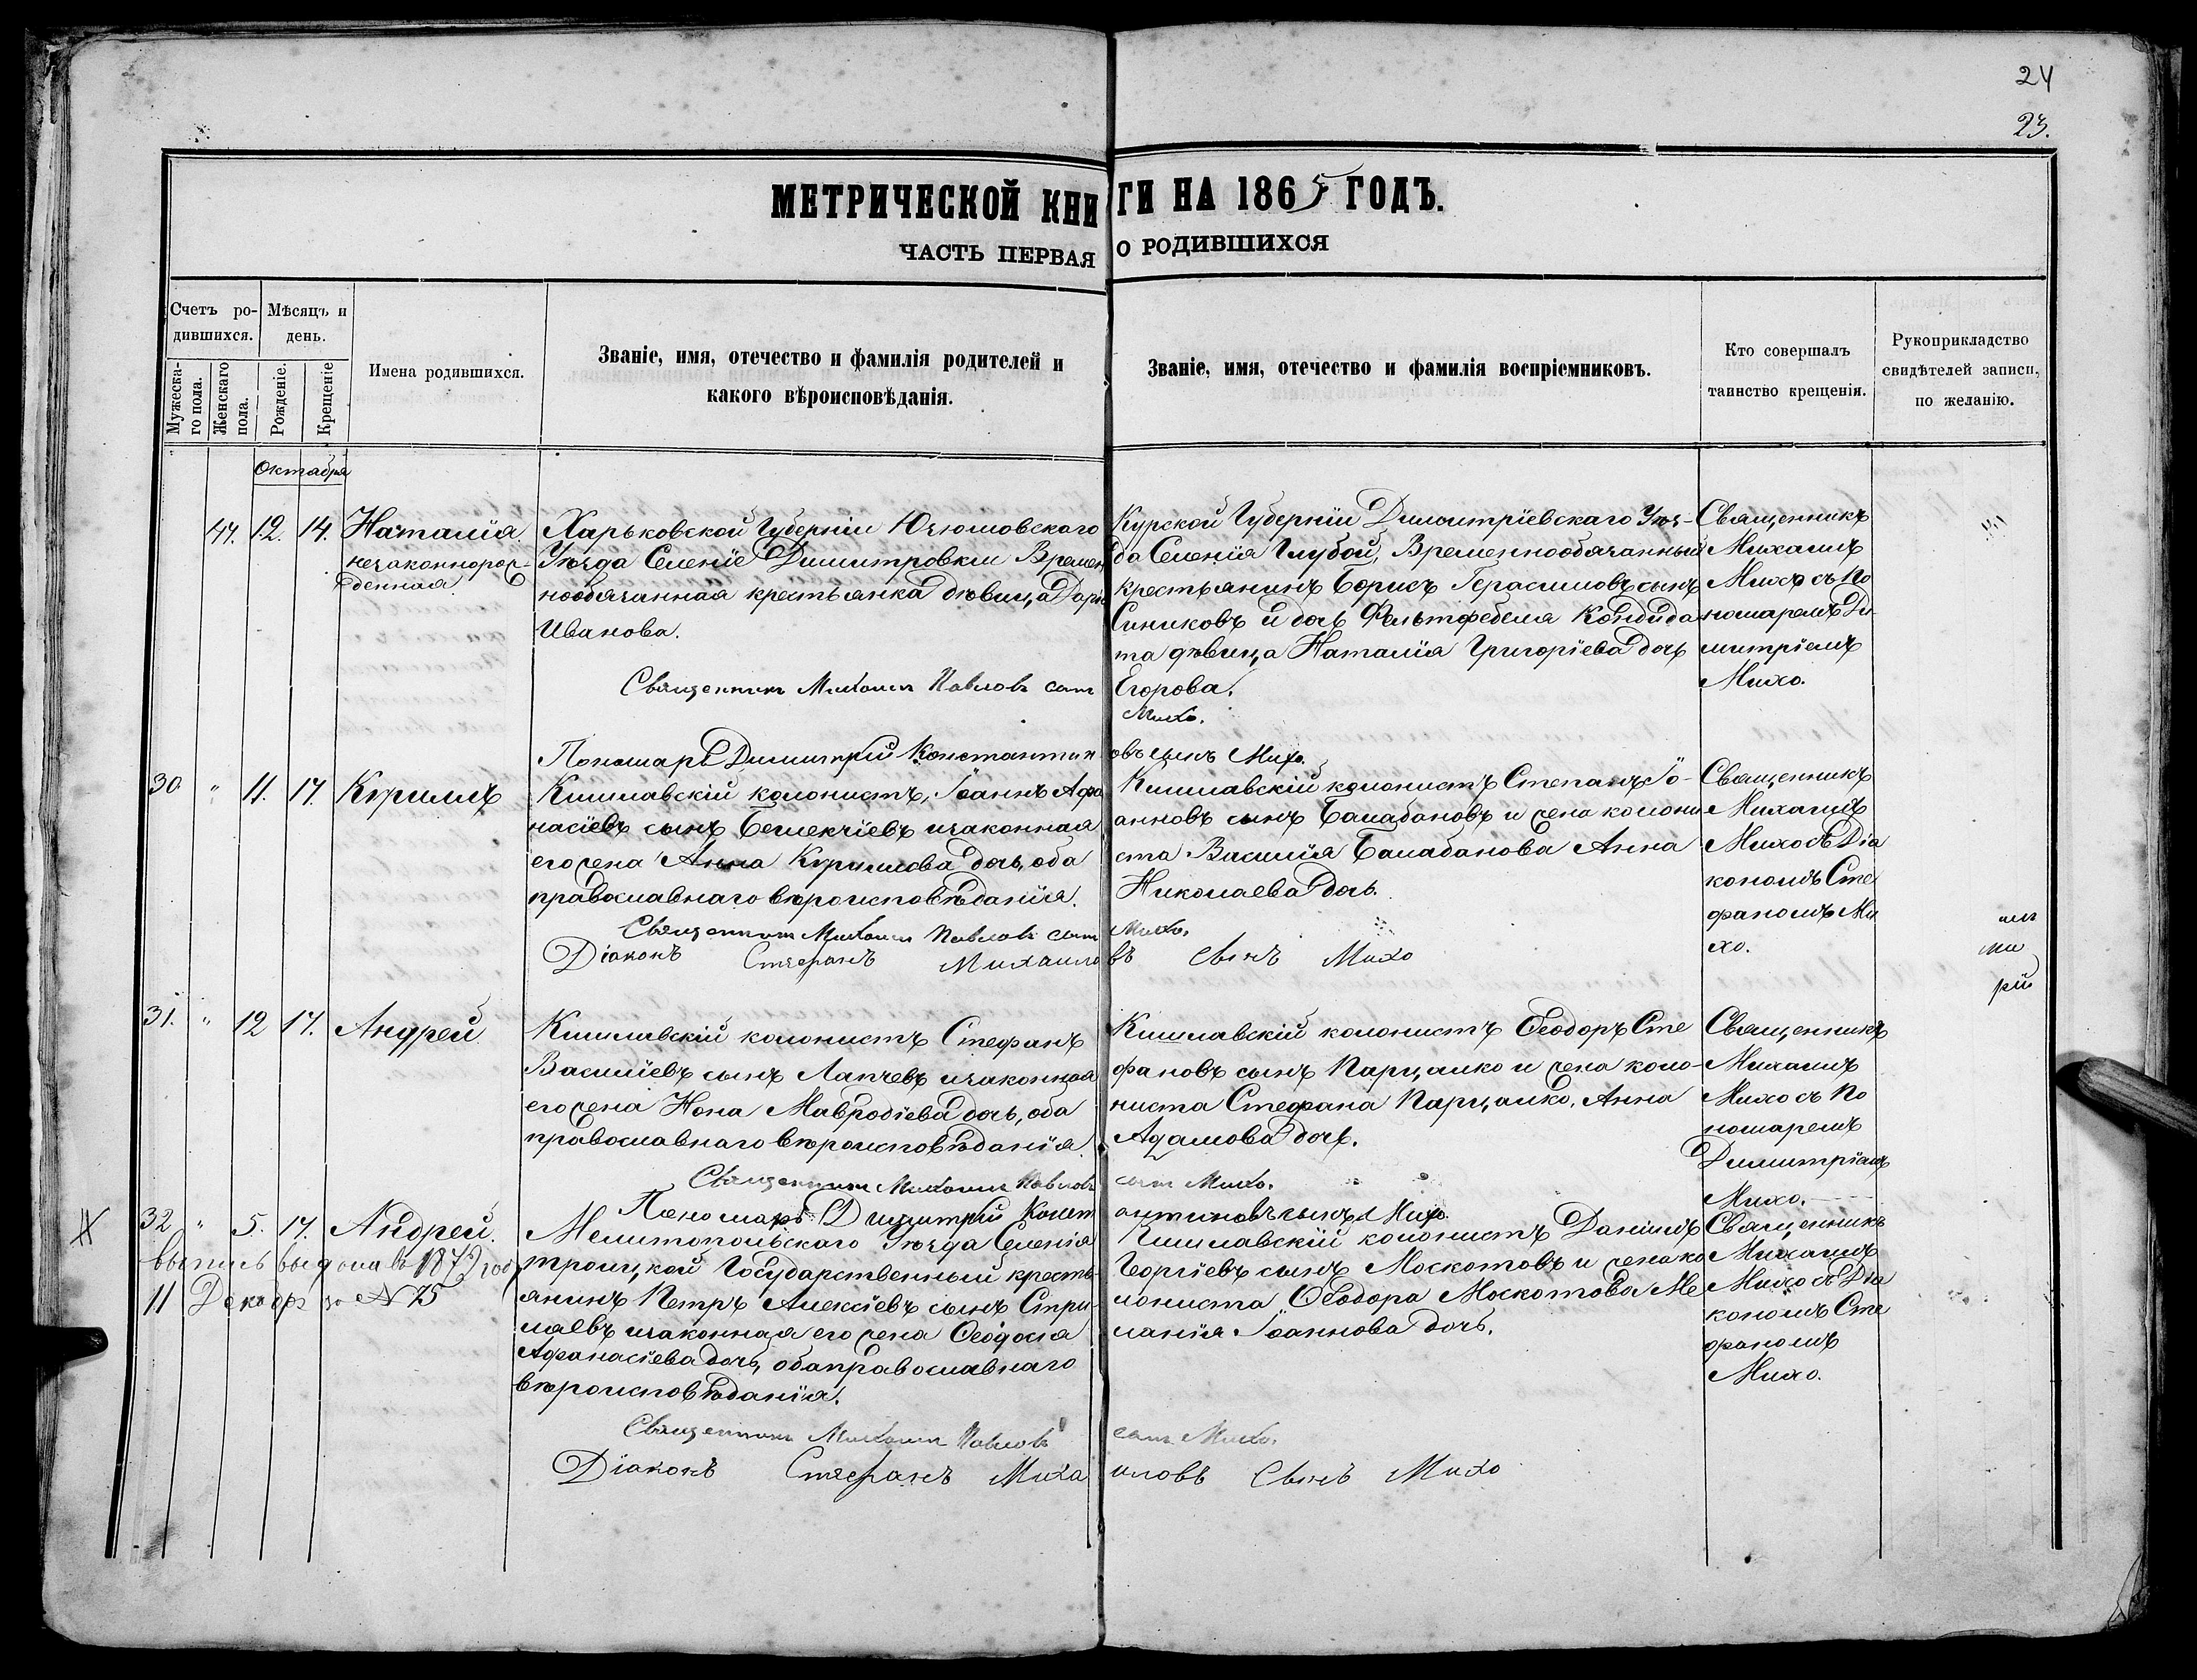 24
23.
МЕТРИЧЕСКОЙ КНИГИ НА 1865 ГОДЪ.
ЧАСТЬ ПЕРВАЯ О РОДИВШИХСЯ
Счетъ ро-
дившихся.
Мужеска-
го пола.
Женскаго
пола.
Мѣсяцъ и
день.
Рожденіе.
Крещеніе
Имена родившихся.
Званіе, имя, отечество и фамилія родителей и
какого вѣроисповѣданія.
Званіе, имя, отечество и фамилія воспріемниковъ.
Кто совершалъ
таинство крещенія.
Рукоприкладство
свидѣтелей записи,
по желанію.
Октября
44. 12. 14. Наталія
незаконнорож-
денная.
Харьковской Губерніи
Уѣзда Селеніе Димитровки Времен
нообязанная крестьянка дѣвица Дарія
Иванова.
Священникъ Михаилъ Павловъ сынъ
Михо.
Пономарь Димитрій Константиновъ сынъ Михо.
Курской Губерніи Димитріевскаго Уѣз-
да Селенія Глубой, Временнообязанный
крестьянинъ Борисъ Герасимовъ сынъ
Синиковъ и дочь Фельтфебеля Кондида
та дѣвица Наталія Григоріева дочь
Егорова.
Священникъ
Михаилъ
Михо съ По
номаремъ Ди-
митріемъ
Михо.
30. " 11. 17. Кѵриллъ
Кишлавскій колонистъ, Іоаннъ Афа
насіевъ сынъ Бешекчіевъ изаконная
его жена Анна Кѵриллова дочь, оба
православнаго вѣроисповѣданія.
Священникъ Михаилъ Павловъ сынъ Михо.
Діаконъ Стефанъ Михаиловъ сынъ Михо
Кишлавскій колонистъ Степанъ Іо-
анновъ сынъ Балабановъ и жена колони
ста Василія Балабанова Анна
Николаева дочь.
Священникъ
Михаилъ
Михо съ Діа
кономъ Сте
фаномъ Ми
хо.
31. " 12 17. Андрей
Кишлавскій колонистъ Стефанъ
Василіевъ сынъ Лапчевъ изаконная
его жена Нона Мавродіева дочь, оба
православнаго вѣроисповѣданія.
Священникъ Михаилъ Павловъ сынъ Михо.
Пономарь Димитрій Константиновъ сынъ Михо.
Кишлавскій колонистъ Ѳеодоръ Сте
фановъ сынъ Парцалко и жена коло-
ниста Стефана Парцалко, Анна
Адамова дочь.
Священникъ
Михаилъ
Михо съ По
номаремъ
Димитріемъ
Михо.
32 " 5. 17. Андрей.
выпись выдана въ 1872 год
11 Декабр за № 25
Мелитопольскаго Уѣзда Селенія
троицкой Государственный кресть-
янинъ Петръ Алексіевъ сынъ Стри-
лаевъ изаконная его жена Ѳеодосія
Афанасіева дочь, оба православнаго
вѣроисповѣданія.
Священникъ Михаилъ Павловъ сынъ Михо.
Діаконъ Стефанъ Михаиловъ Сынъ Михо
Кишлавскій колонистъ Даніилъ
Георгіевъ сынъ Москотовъ и жена ко
лониста Ѳеодора Москотова Ме
ланія Іоаннова дочь.
Священникъ
Михаилъ
Михо съ Діа
кономъ Сте
фаномъ
Михо.